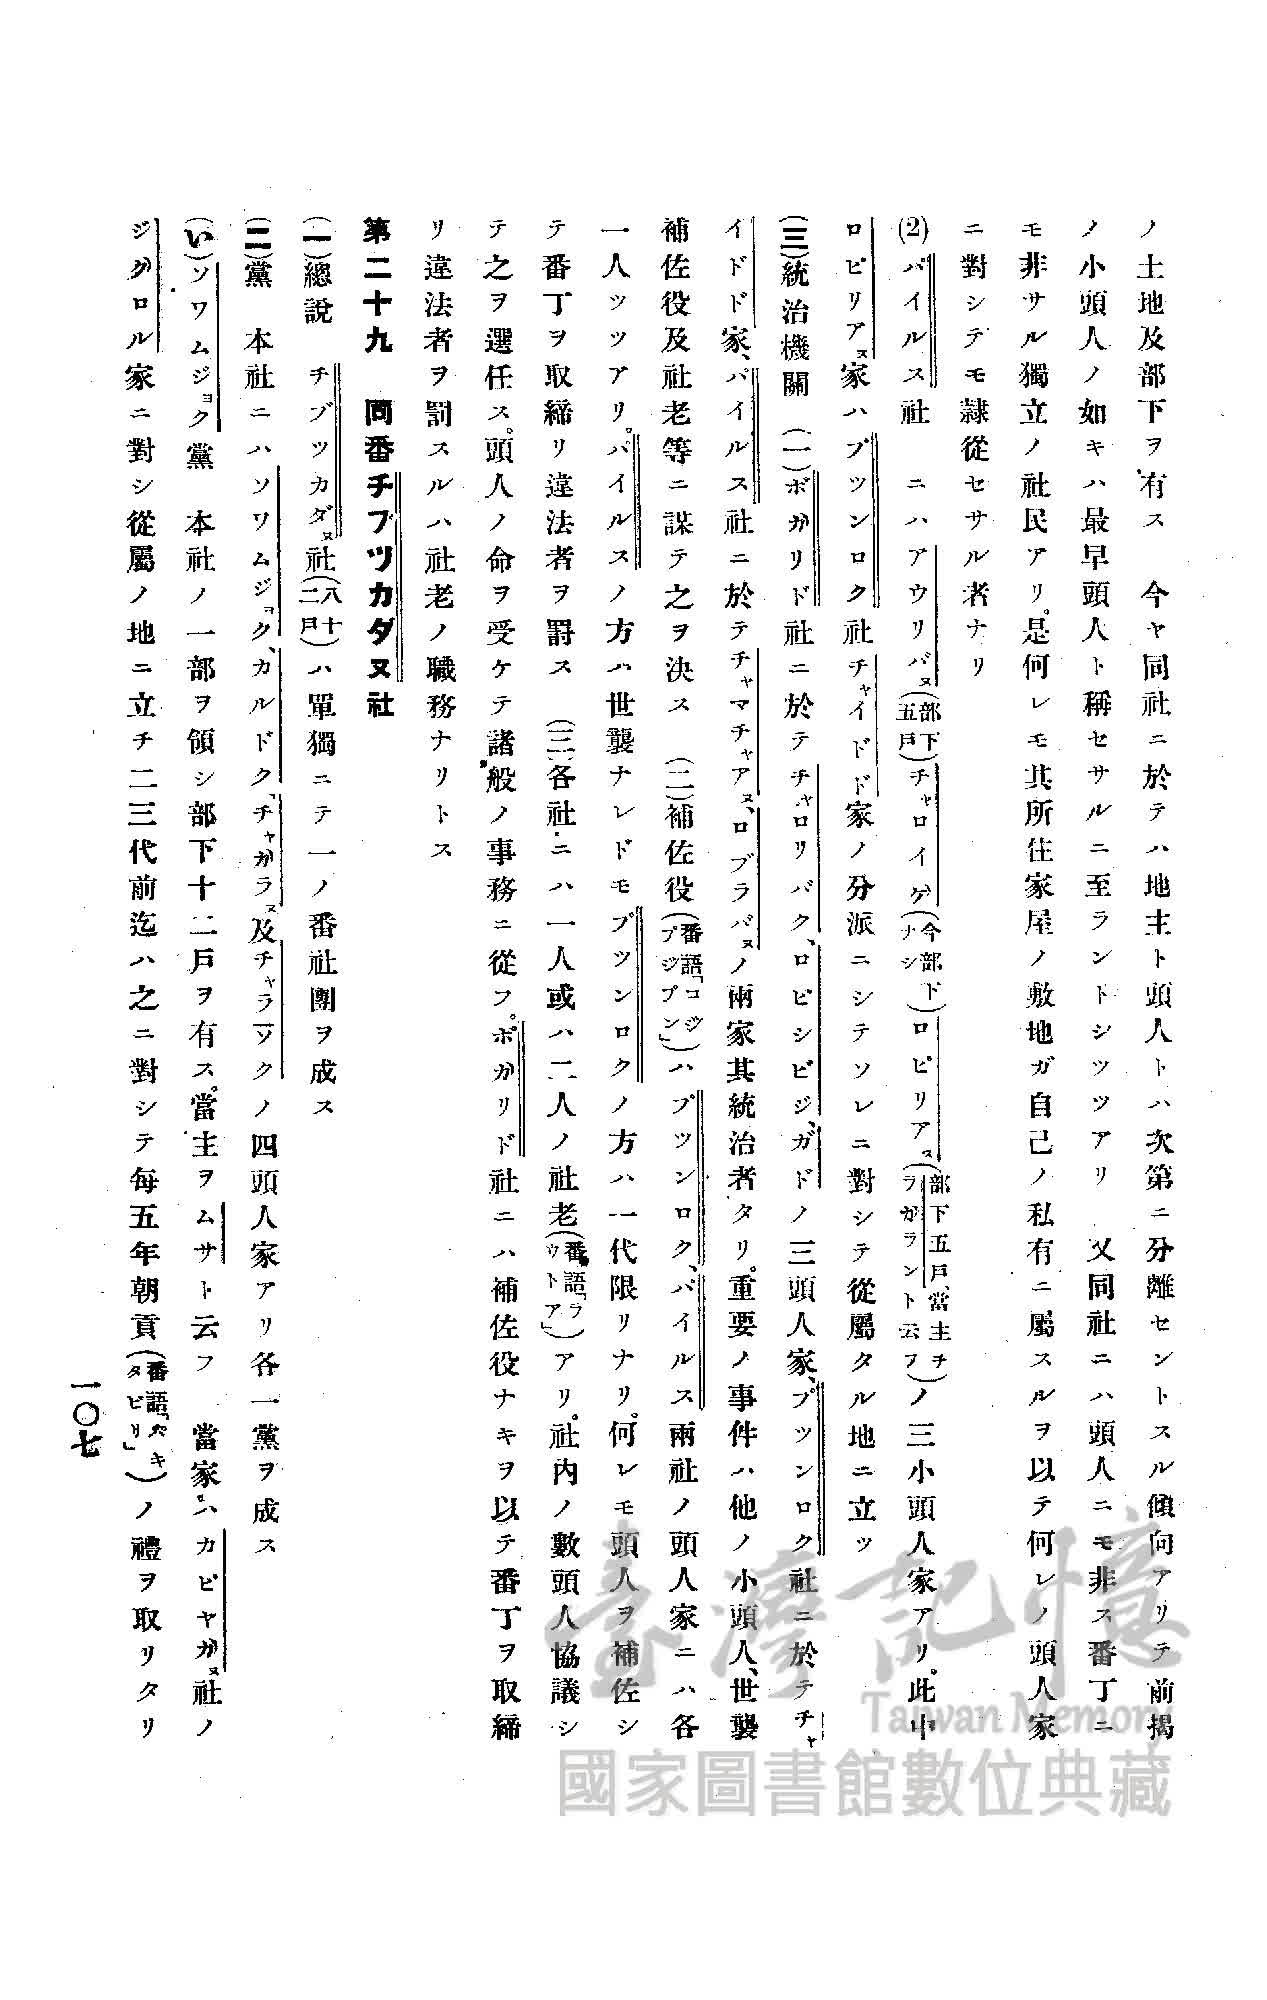 ノ土地及部下ヲ有ス　今ヤ同社ニ於テハ地主ト頭人トハ次第ニ分離セントスル傾向アリテ前揭
ノ小頭人ノ如キハ最早頭人ト稱セサルニ至ラントシツツアリ　又同社ニハ頭人ニモ非ス番丁ニ
モ非サル獨立ノ社民アリ。是何レモ其所住家屋ノ敷地ガ自己ノ私有ニ屬スルヲ以テ何レノ頭人家
ニ對シテモ隷從セサル者ナリ
(2)パイルス社　ニハアウリバヌ(部下五戶)チャロイゲ(今部下ナシ)ロピリアス(部下五戶、當主チラガラントト云フ)ノ三小頭人家アリ。此中
ロピリアヌ家ハブツンロク社チャイドド家ノ分派ニシテソレニ對シテ從屬タル地ニ立ツ
(三)統治機關　(一)ボガリド社ニ於テチャロリバク、ロピシビジ、ガドノ三頭人家、ブツンロク社ニ於テチャ
イドド家、パイルス社ニ於テチャマチャアヌ、ロブラバヌノ兩家其統治者タリ。重要ノ事件ハ他ノ小頭人、世襲
補佐役及社老等ニ謀テ之ヲ決ス　(二)補佐役(番語「コジプジプン」)ハブツンロク、パイルス兩社ノ頭人家ニハ各
一人ツツアリ。パイルスノ方ハ世襲ナレドモブツンロクノ方ハ一代限リナリ。何レモ頭人ヲ補佐シ
テ番丁ヲ取締リ違法者ヲ罸ス　(三)各社ニハ一人或ハ二人ノ社老(番語「ラウトア」)アリ。社內ノ數頭人協議シ
テ之ヲ選任ス。頭人ノ命ヲ受ケテ諸般ノ事務ニ從フ。ボガリド社ニハ補佐役ナキヲ以テ番丁ヲ取締
リ違法者ヲ罰スルハ社老ノ職務ナリトス
第二十九　同番チブツカダヌ社
(一)總說　チブツカダヌ社(八十二戶)ハ單獨ニテ一ノ番社團ヲ成ス
(二)黨　本社ニハソワムジョク、カルドク、チャガラヌ及チャラアクノ四頭人家アリ各一黨ヲ成ス
(い)ソワムジョク黨　本社ノ一部ヲ領シ部下十二戶ヲ有ス。當主ヲムサト云フ　當家ハカピヤガヌ社ノ
ジグロル家ニ對シ從屬ノ地ニ立チ二三代前迄ハ之ニ對シテ每五年朝貢(番語「パキタピリ」)ノ禮ヲ取リタリ
一〇七
臺灣記憶
Taiwan Memory
國家圖書館數位典藏